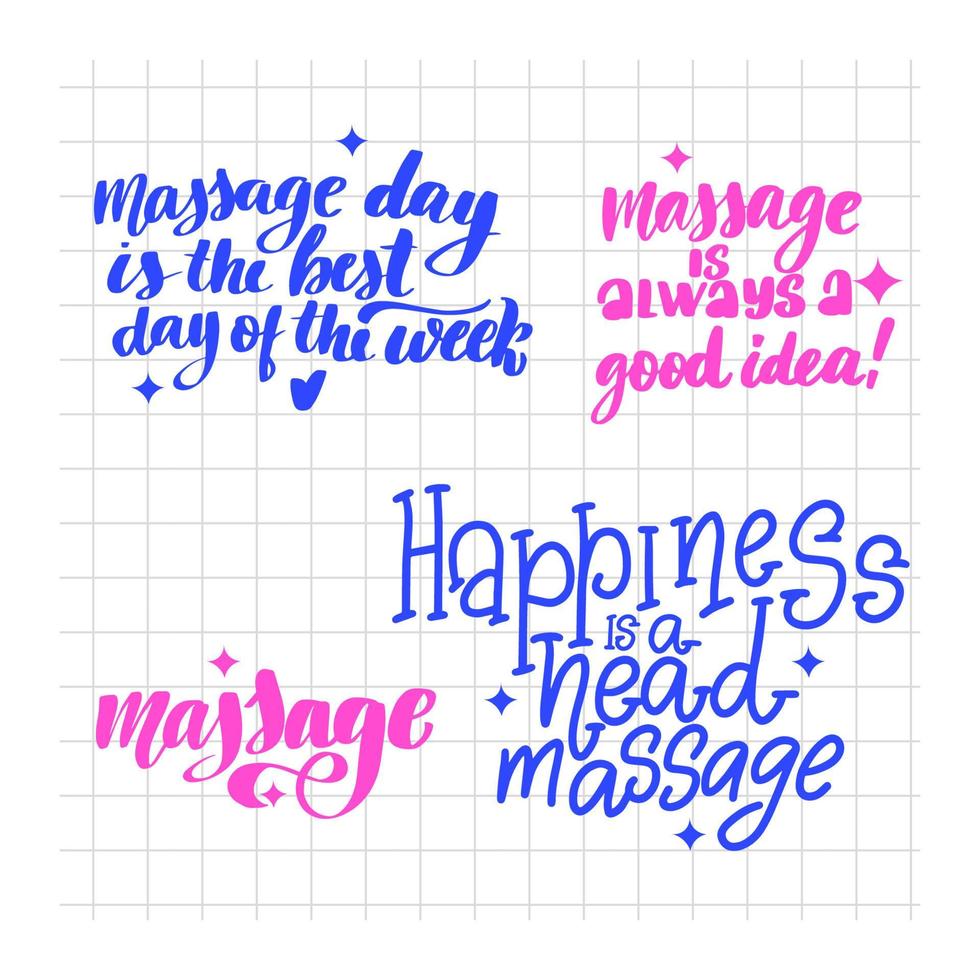 Massage day
is the best
day of the week
Massage
is
always a
good idea!
Massage
Happiness
is a
head
massage